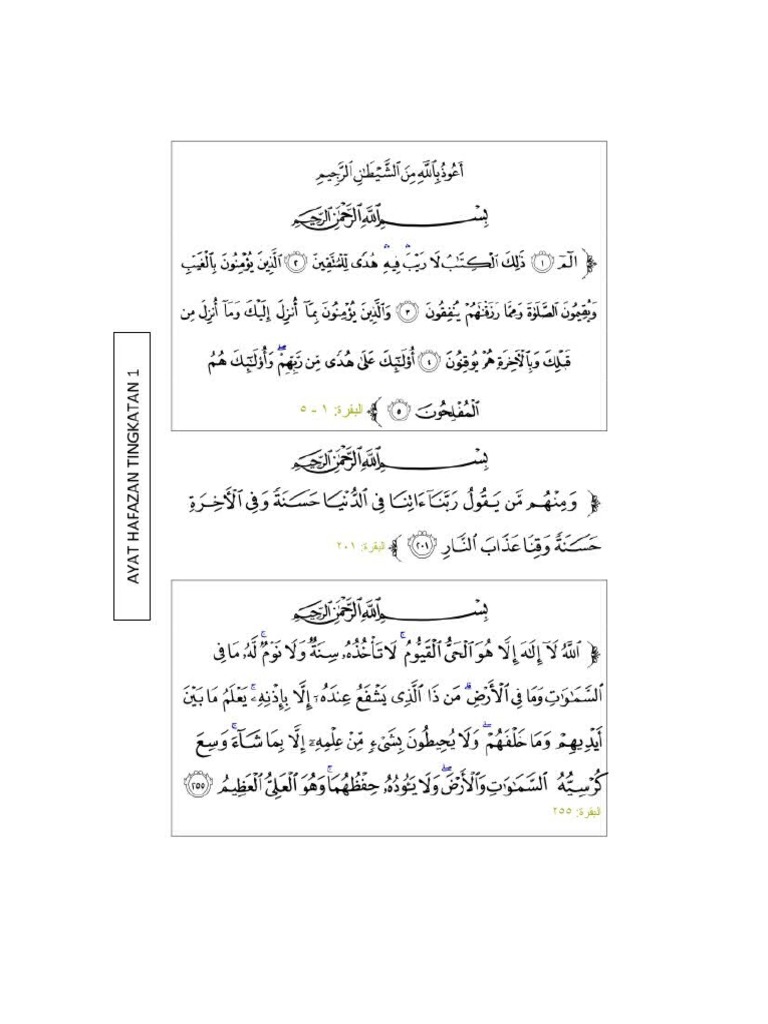 AYAT HAFAZAN TINGKATAN 1
أَعُوذُ بِٱللَّهِ مِنَ ٱلشَّيْطَانِ ٱلرَّجِيمِ
بِسْمِ ٱللَّهِ ٱلرَّحْمَٰنِ ٱلرَّحِيمِ
﴿ الٓمٓ ١ ذَٰلِكَ ٱلْكِتَٰبُ لَا رَيْبَ ۛ فِيهِ ۛ هُدًى لِّلْمُتَّقِينَ ٢ ٱلَّذِينَ يُؤْمِنُونَ بِٱلْغَيْبِ
وَيُقِيمُونَ ٱلصَّلَوٰةَ وَمِمَّا رَزَقْنَٰهُمْ يُنفِقُونَ ٣ وَٱلَّذِينَ يُؤْمِنُونَ بِمَآ أُنزِلَ إِلَيْكَ وَمَآ أُنزِلَ مِن
قَبْلِكَ وَبِٱلْأَخِرَةِ هُمْ يُوقِنُونَ ٤ أُو۟لَٰٓئِكَ عَلَىٰ هُدًى مِّن رَّبِّهِمْ ۖ وَأُو۟لَٰٓئِكَ هُمُ
ٱلْمُفْلِحُونَ ٥ ﴾ البقرة: ١ - ٥
بِسْمِ ٱللَّهِ ٱلرَّحْمَٰنِ ٱلرَّحِيمِ
﴿ وَمِنْهُم مَّن يَقُولُ رَبَّنَآ ءَاتِنَا فِى ٱلدُّنْيَا حَسَنَةً وَفِى ٱلْأَخِرَةِ
حَسَنَةً وَقِنَا عَذَابَ ٱلنَّارِ ٢٠١ ﴾ البقرة: ٢٠١
بِسْمِ ٱللَّهِ ٱلرَّحْمَٰنِ ٱلرَّحِيمِ
﴿ ٱللَّهُ لَآ إِلَٰهَ إِلَّا هُوَ ٱلْحَىُّ ٱلْقَيُّومُ ۚ لَا تَأْخُذُهُۥ سِنَةٌ وَلَا نَوْمٌ ۚ لَّهُۥ مَا فِى
ٱلسَّمَٰوَٰتِ وَمَا فِى ٱلْأَرْضِ ۗ مَن ذَا ٱلَّذِى يَشْفَعُ عِندَهُۥٓ إِلَّا بِإِذْنِهِۦ ۚ يَعْلَمُ مَا بَيْنَ
أَيْدِيهِمْ وَمَا خَلْفَهُمْ ۖ وَلَا يُحِيطُونَ بِشَىْءٍ مِّنْ عِلْمِهِۦٓ إِلَّا بِمَا شَآءَ ۚ وَسِعَ
كُرْسِيُّهُ ٱلسَّمَٰوَٰتِ وَٱلْأَرْضَ ۖ وَلَا يَـُٔودُهُۥ حِفْظُهُمَا ۚ وَهُوَ ٱلْعَلِىُّ ٱلْعَظِيمُ ٢٥٥
البقرة: ٢٥٥